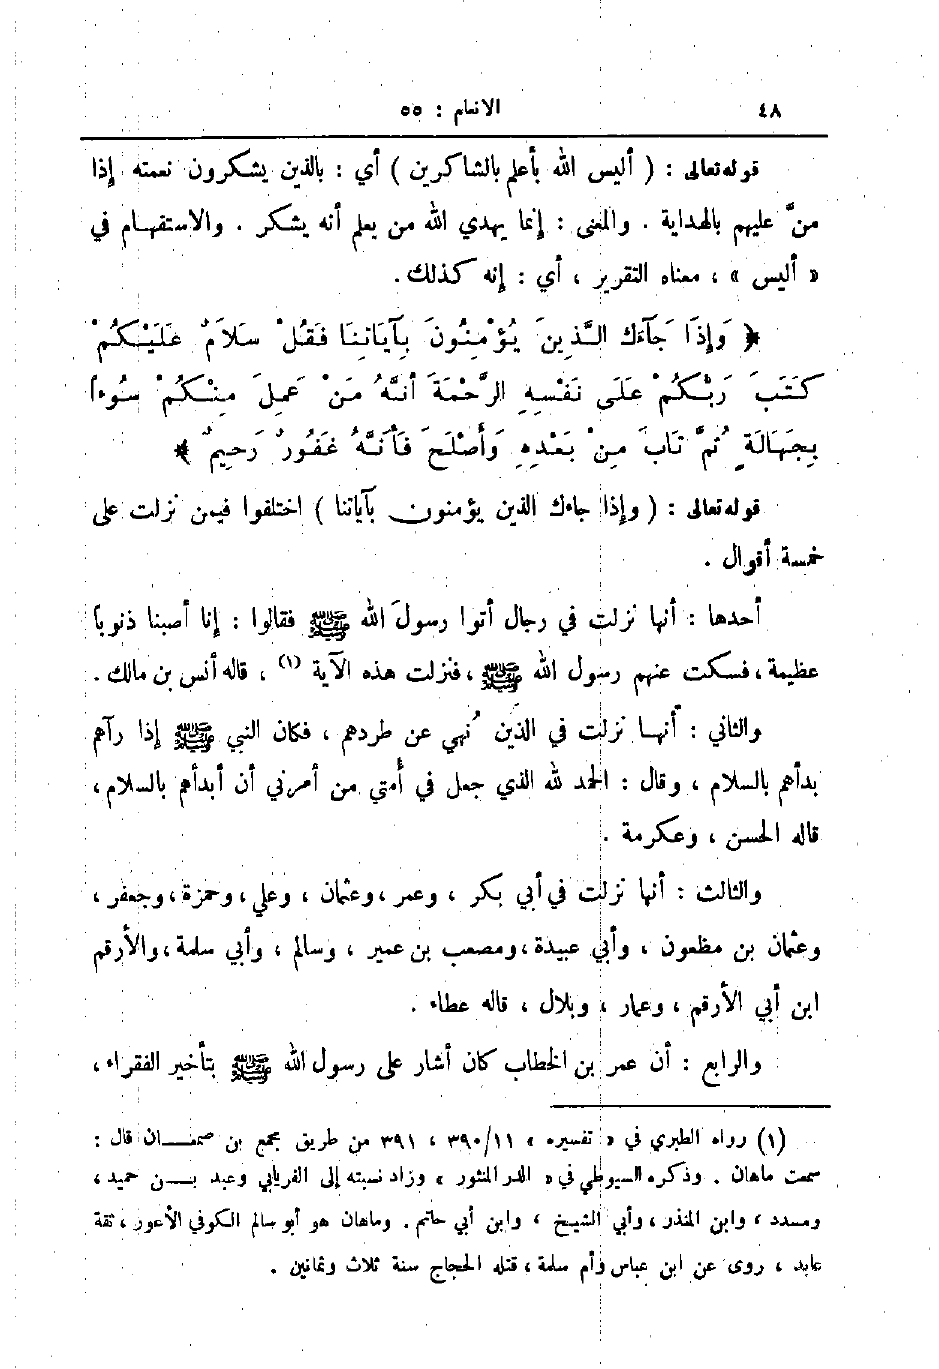 ٤٨ الانعام : ٥٥
قوله تعالى : ( أليس الله بأعلم بالشاكرين ) أي : بالذين يشكرون نعمته إذا
منَّ عليهم بالهداية . والمعنى : إنما يهدي الله من يعلم أنه يشكر . والاستفهام في
« أليس » ، معناه التقرير ، أي : إنه كذلك .
﴿ وَإِذَا جَآءَكَ الَّذِينَ يُؤْمِنُونَ بِآيَاتِنَا فَقُلْ سَلَامٌ عَلَيْكُمْ
كَتَبَ رَبُّكُمْ عَلَى نَفْسِهِ الرَّحْمَةَ أَنَّهُ مَنْ عَمِلَ مِنْكُمْ سُوءاً
بِجَهَالَةٍ ثُمَّ تَابَ مِنْ بَعْدِهِ وَأَصْلَحَ فَأَنَّهُ غَفُورٌ رَحِيمٌ ﴾
قوله تعالى : ( وإذا جاءك الذين يؤمنون بآياتنا ) اختلفوا فيمن نزلت على
خمسة أقوال .
أحدها : أنها نزلت في رجال أتوا رسولَ الله ﷺ فقالوا : إنا أصبنا ذنوباً
عظيمة ، فسكت عنهم رسول الله ﷺ ، فنزلت هذه الآية (١) ، قاله أنس بن مالك .
والثاني : أنها نزلت في الذين نُهي عن طردهم ، فكان النبي ﷺ إذا رآهم
بدأهم بالسلام ، وقال : الحمد لله الذي جعل في أُمتي من أمرني أن أبدأهم بالسلام ،
قاله الحسن ، وعكرمة .
والثالث : أنها نزلت في أبي بكر ، وعمر ، وعثمان ، وعلي ، وحمزة ، وجعفر ،
وعثمان بن مظعون ، وأبي عبيدة ، ومصعب بن عمير ، وسالم ، وأبي سلمة ، والأرقم
ابن أبي الأرقم ، وعمار ، وبلال ، قاله عطاء .
والرابع : أن عمر بن الخطاب كان أشار على رسول الله ﷺ بتأخير الفقراء ،
(١) رواه الطبري في « تفسيره » ١١/‏٣٩٠ ، ٣٩١ من طريق مجمع بن صمعان قال :
سمعت ماهان . وذكره السيوطي في « الدر المنثور » وزاد نسبته إلى الفريابي وعبد بن حميد ،
ومسدد ، وابن المنذر ، وأبي الشيخ ، وابن أبي حاتم . وماهان هو أبو سالم الكوفي الأعور ، ثقة
عابد ، روى عن ابن عباس وأم سلمة ، قتله الحجاج سنة ثلاث وثمانين .